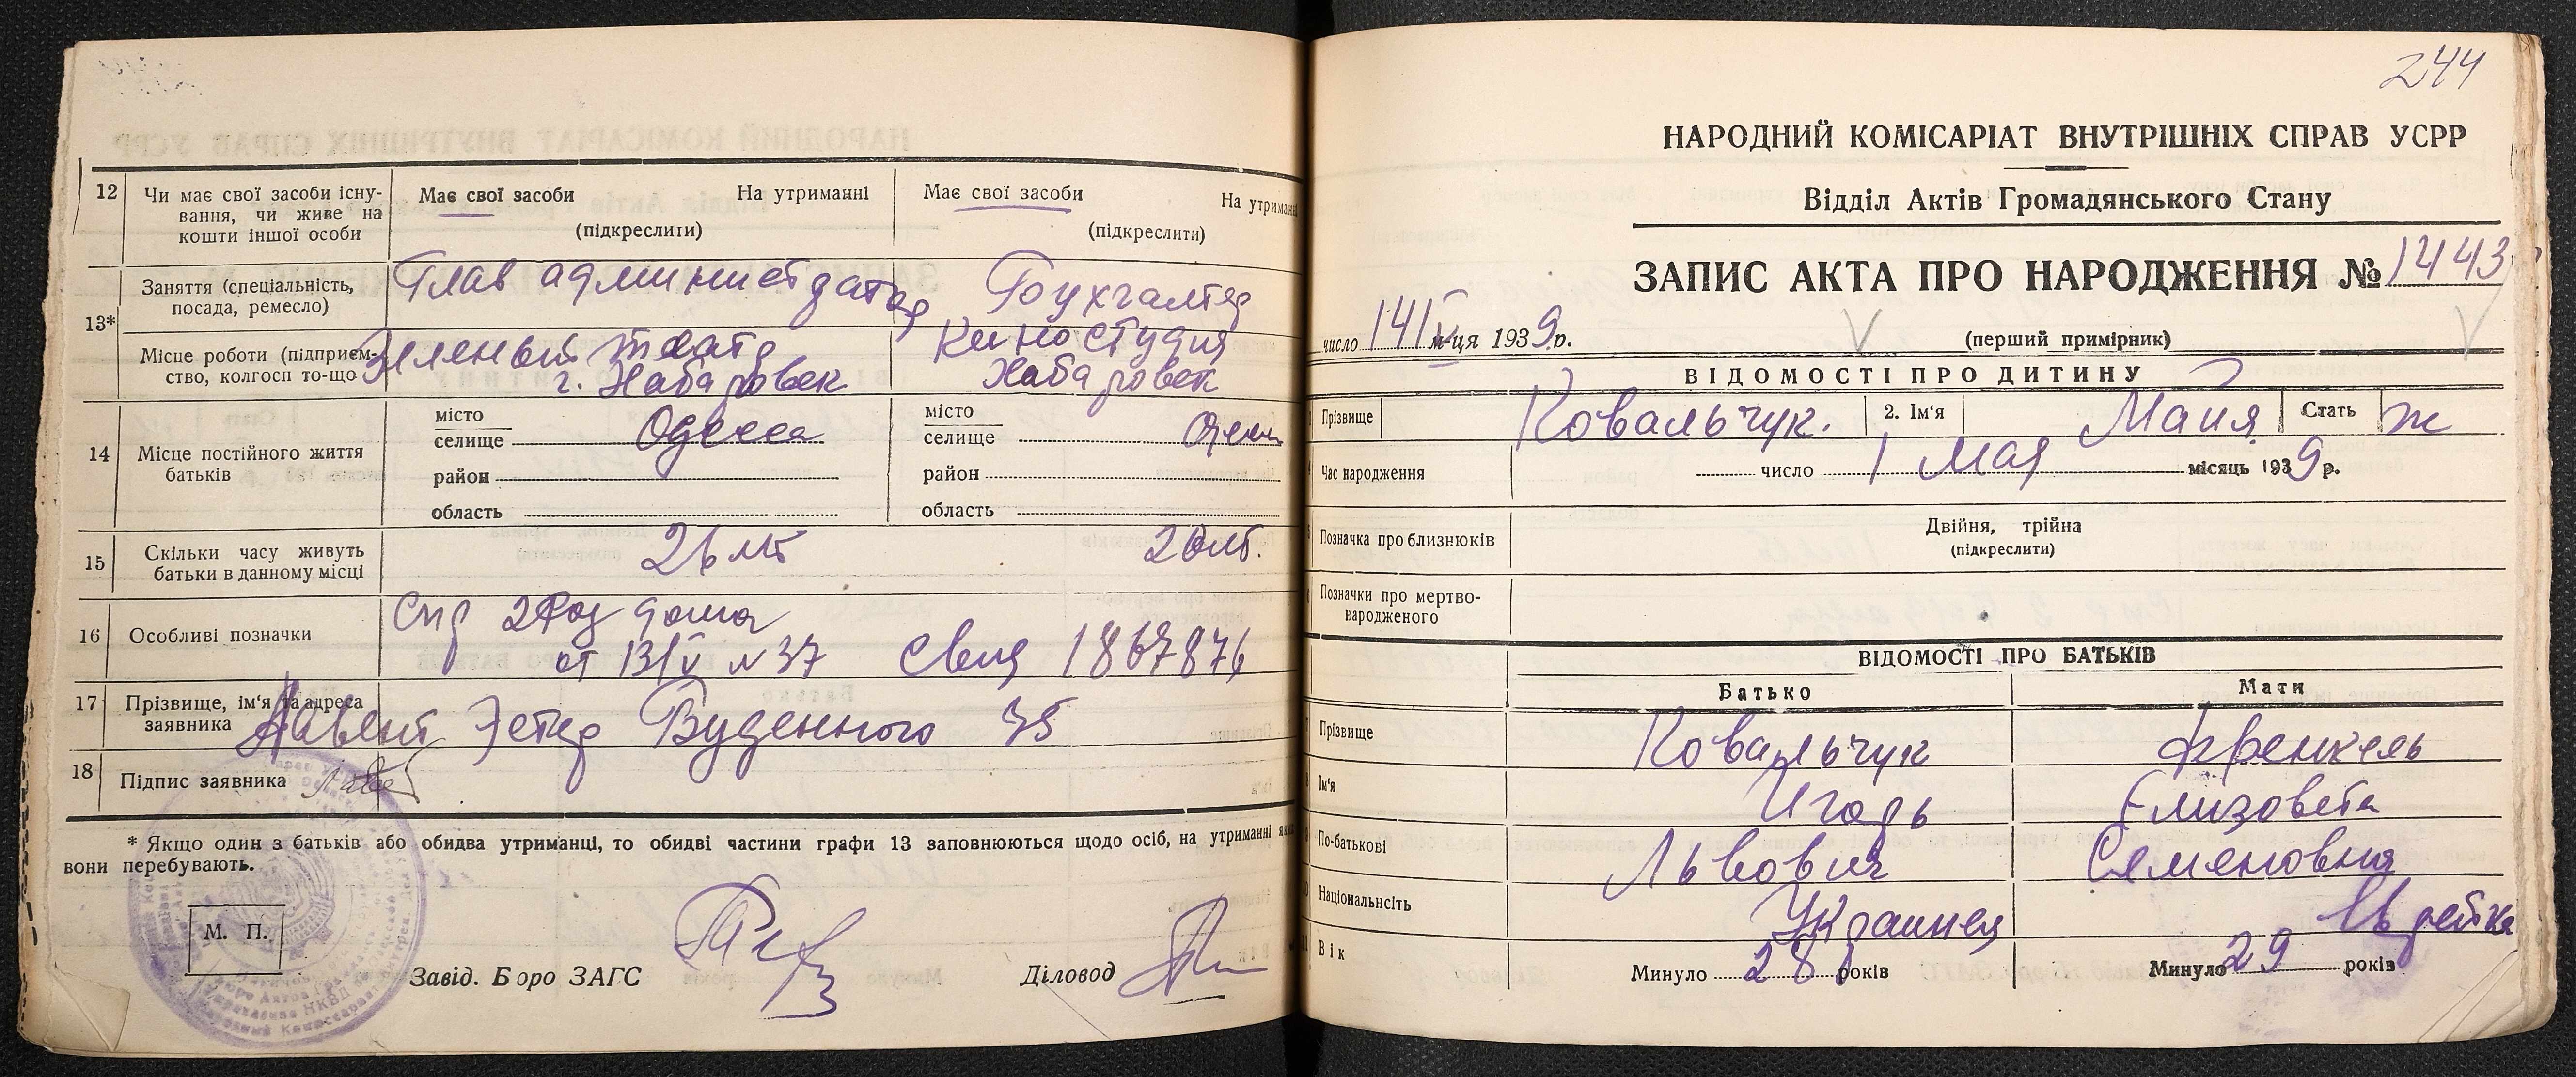 12 Чи має свої засоби існу-
вання, чи живе на
кошти іншої особи
Має свої засоби На утриманні
(підкреслити)
Має свої засоби На утриманні
(підкреслити)
13* Заняття (спеціальність,
посада, ремесло)
Глав администратор
Бухгалтер
Місце роботи (підприєм-
ство, колгосп то-що
Зеленый театр
г. Хабаровск
Киностудия
Хабаровск
14 Місце постійного життя
батьків
місто
селище Одесса
район
область
місто
селище
район
область
15 Скільки часу живуть
батьки в данному місці
26 лет
16 Особливі позначки
Спр 2 Род дома
от 13/V № 37 Свид 1867876
17 Прізвище, ім'я та адреса
заявника
Эстер Буденного 35
18 Підпис заявника
* Якщо один з батьків або обидва утриманці, то обидві частини графи 13 заповнюються щодо осіб, на утриманні яких
вони перебувають.
М. П.
Завід. Бюро ЗАГС
Діловод
244
НАРОДНИЙ КОМІСАРІАТ ВНУТРІШНІХ СПРАВ УСРР
Відділ Актів Громадянського Стану
ЗАПИС АКТА ПРО НАРОДЖЕННЯ № 1443
число 14/V м-ця 1939 р.
(перший примірник)
ВІДОМОСТІ ПРО ДИТИНУ
Прізвище Ковальчук. 2. Ім'я Майя Стать ж
Час народження число 1 мая місяць 1939 р.
Позначка про близнюків
Двійня, трійна
(підкреслити)
Позначки про мертво-
народженого
ВІДОМОСТІ ПРО БАТЬКІВ
Батько Мати
Прізвище Ковальчук Френкель
Ім'я Игорь Елизовета
По-батькові Львович Семеновна
Національність Украинец Еврейка
Вік Минуло 28 років Минуло 29 років